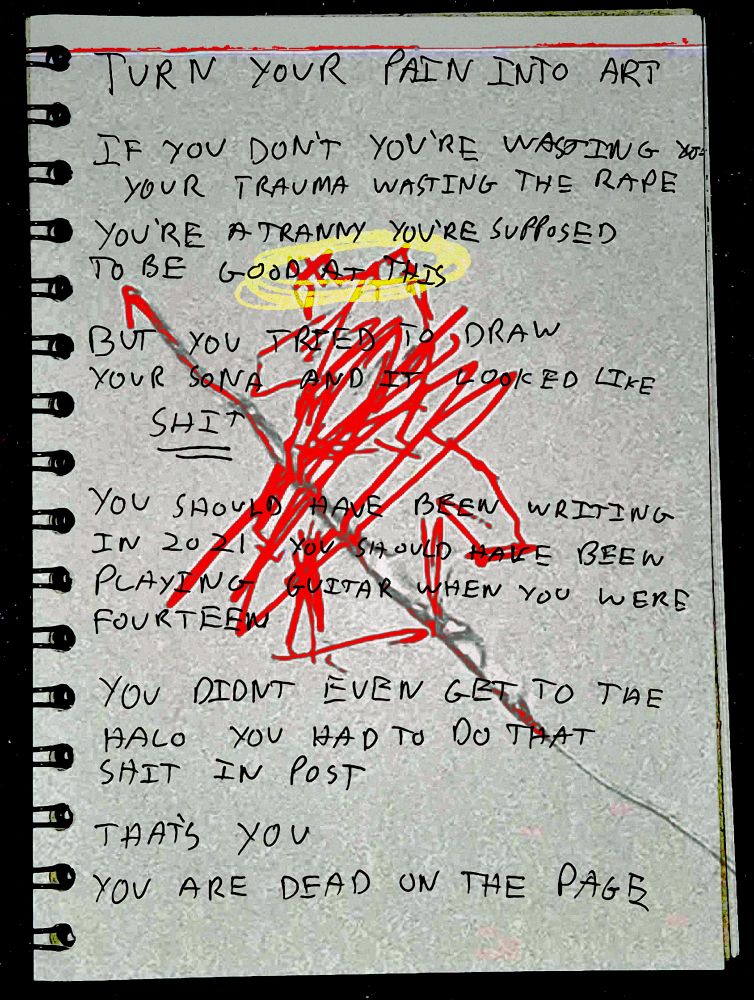 TURN YOUR PAIN INTO ART
IF YOU DON'T YOU'RE WASTING
YOUR TRAUMA WASTING THE RAPE
YOU'RE A TRANNY YOU'RE SUPPOSED
TO BE GOOD AT THIS
BUT YOU TRIED TO DRAW
YOUR SONA AND IT LOOKED LIKE
SHIT
YOU SHOULD HAVE BEEN WRITING
IN 2021 YOU SHOULD HAVE BEEN
PLAYING GUITAR WHEN YOU WERE
FOURTEEN
YOU DIDNT EVEN GET TO THE
HALO YOU HAD TO DO THAT
SHIT IN POST
THAT'S YOU
YOU ARE DEAD ON THE PAGE